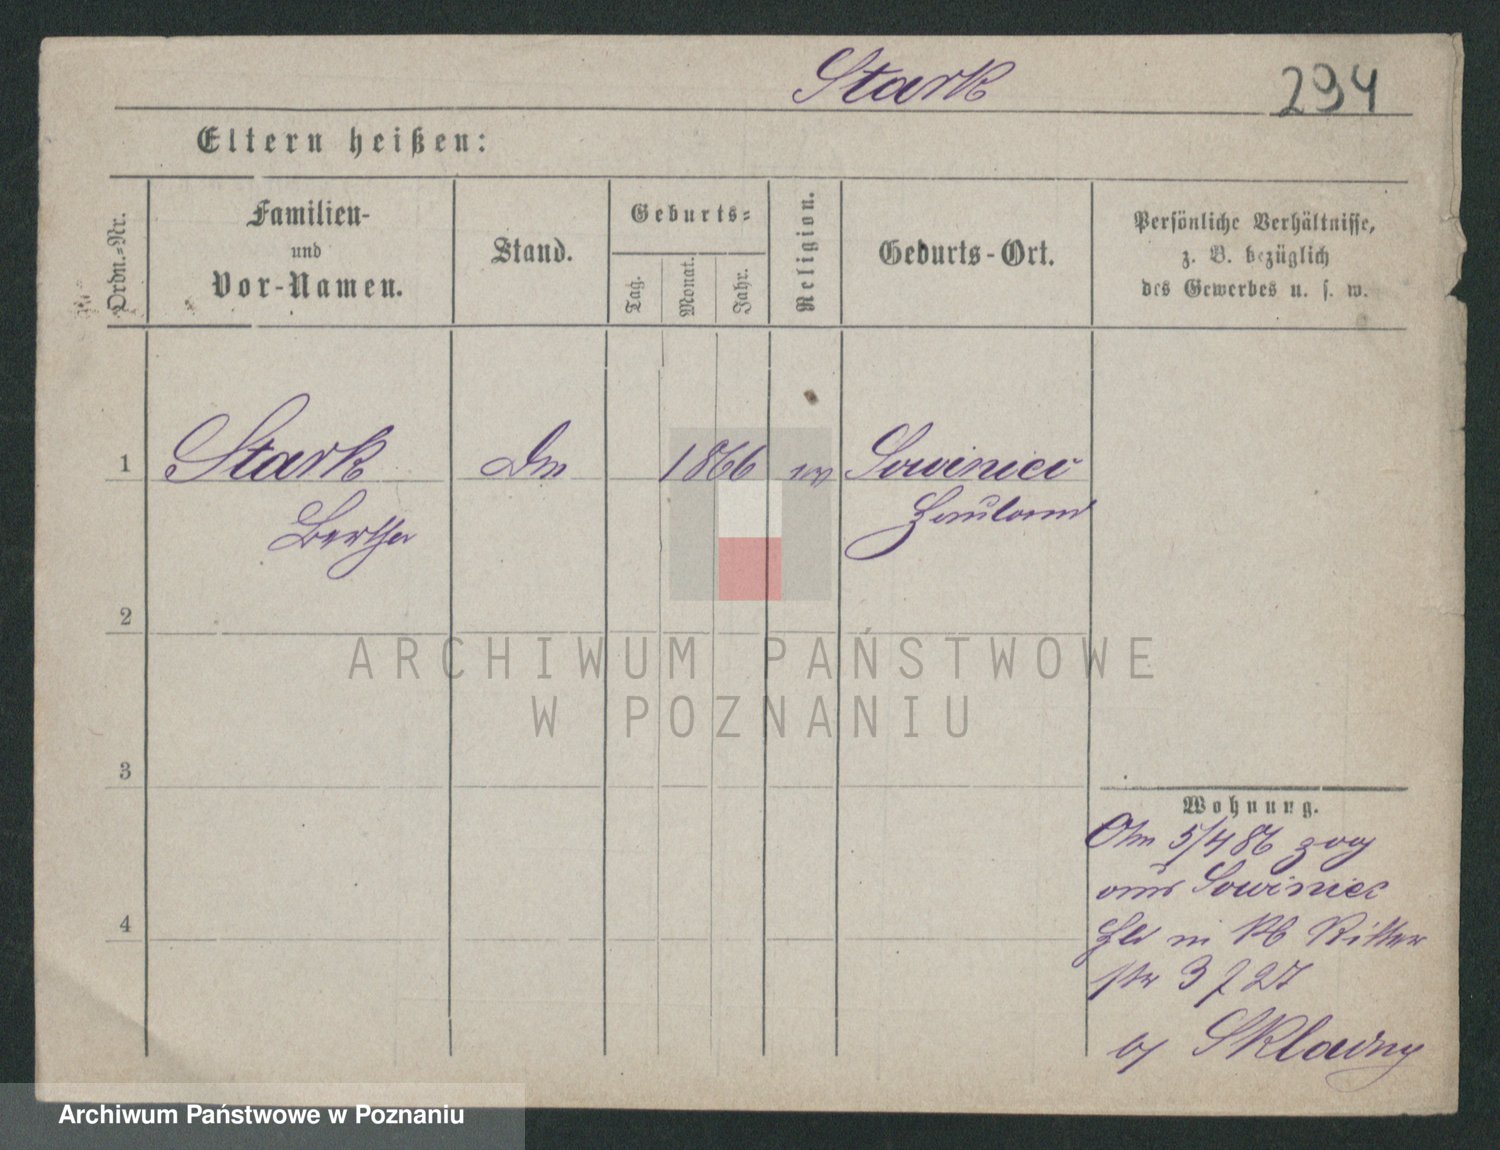 Stark 294
Eltern heißen:
Ordn.-Nr.
Familien-
und
Vor-Namen.
Stand.
Geburts-
Tag.
Monat.
Jahr.
Religion.
Geburts-Ort.
Persönliche Verhältnisse,
z. B. bezüglich
des Gewerbes u. s. w.
1 Stark 1866 ev Sowiniec
Bertha Hauland
2
3
4
Wohnung.
Am 5/4 86 zog
aus Sowiniec
Hld in Ritter
str 3 z 27
Skladny
ARCHIWUM PAŃSTWOWE
W POZNANIU
Archiwum Państwowe w Poznaniu